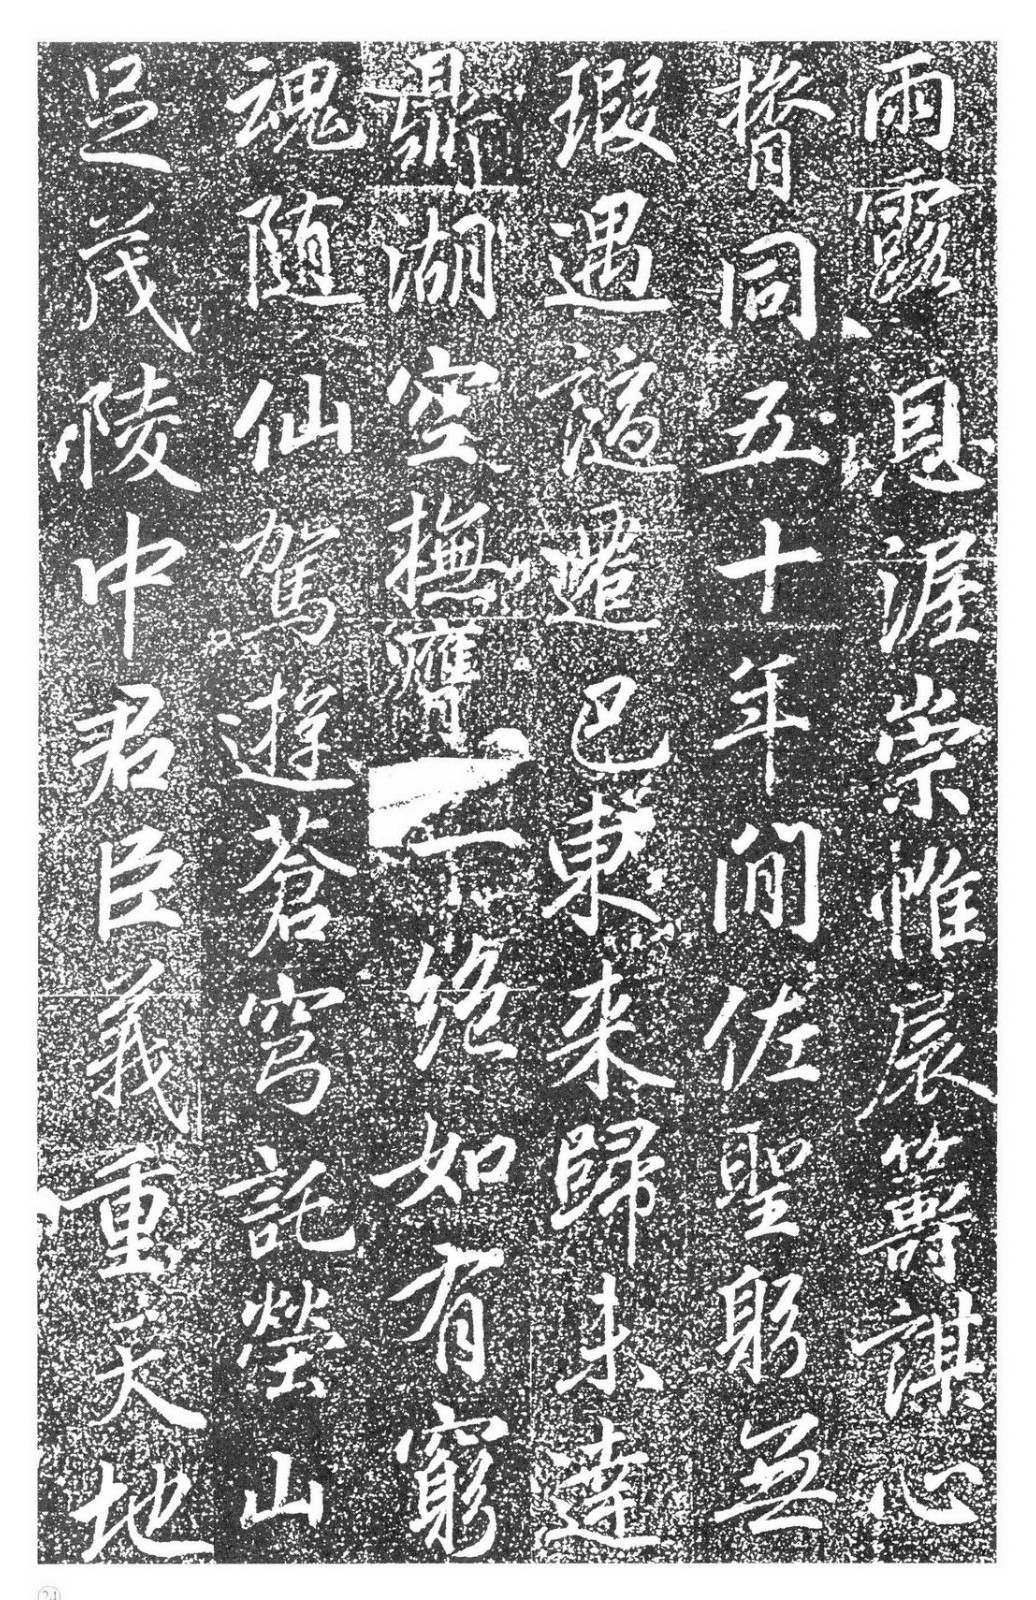 雨露恩渥崇帷扆籌謀心
膂同五十年間佐聖躬無
瑕遇謫遷巴東來歸未達
鼎湖空撫膺一絕如有窮
魂隨仙駕遊蒼穹託塋山
足茂陵中君臣義重天地
24